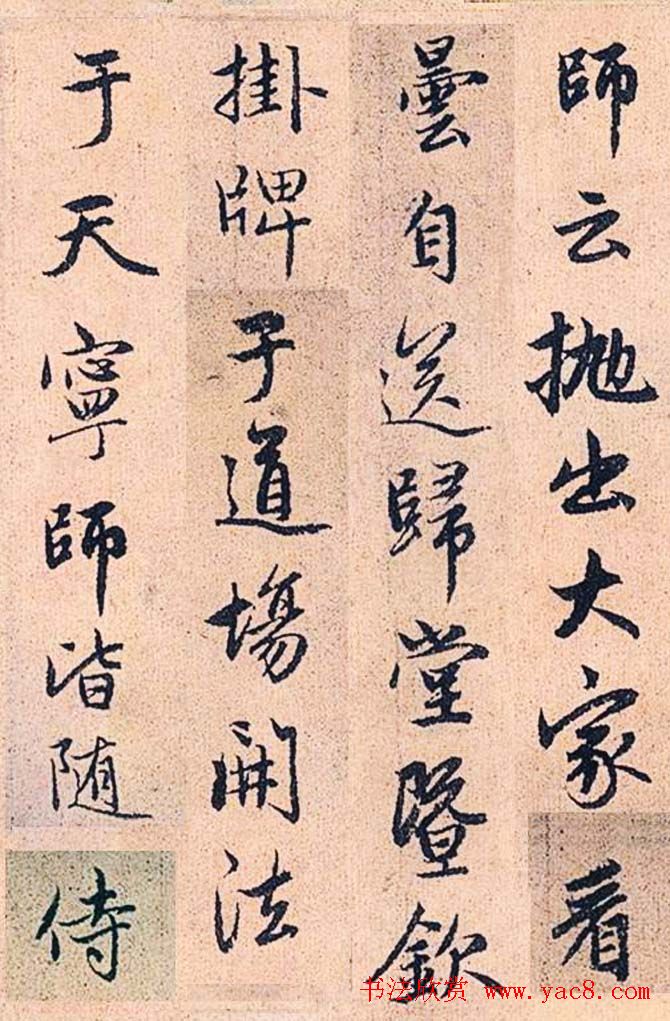 師云抛出大家看
曇自送歸堂暨欽
掛牌子道場開法
于天寧師皆随
侍
书法欣赏 www.yac8.com